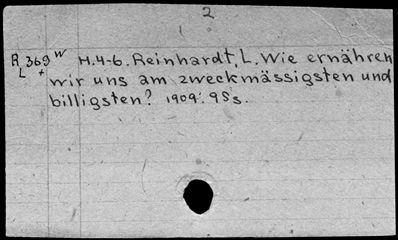 2
R 369 W H.4-6. Reinhardt, L. Wie ernähren
L + wir uns am zweckmässigsten und
billigsten? 1909. 95 s.